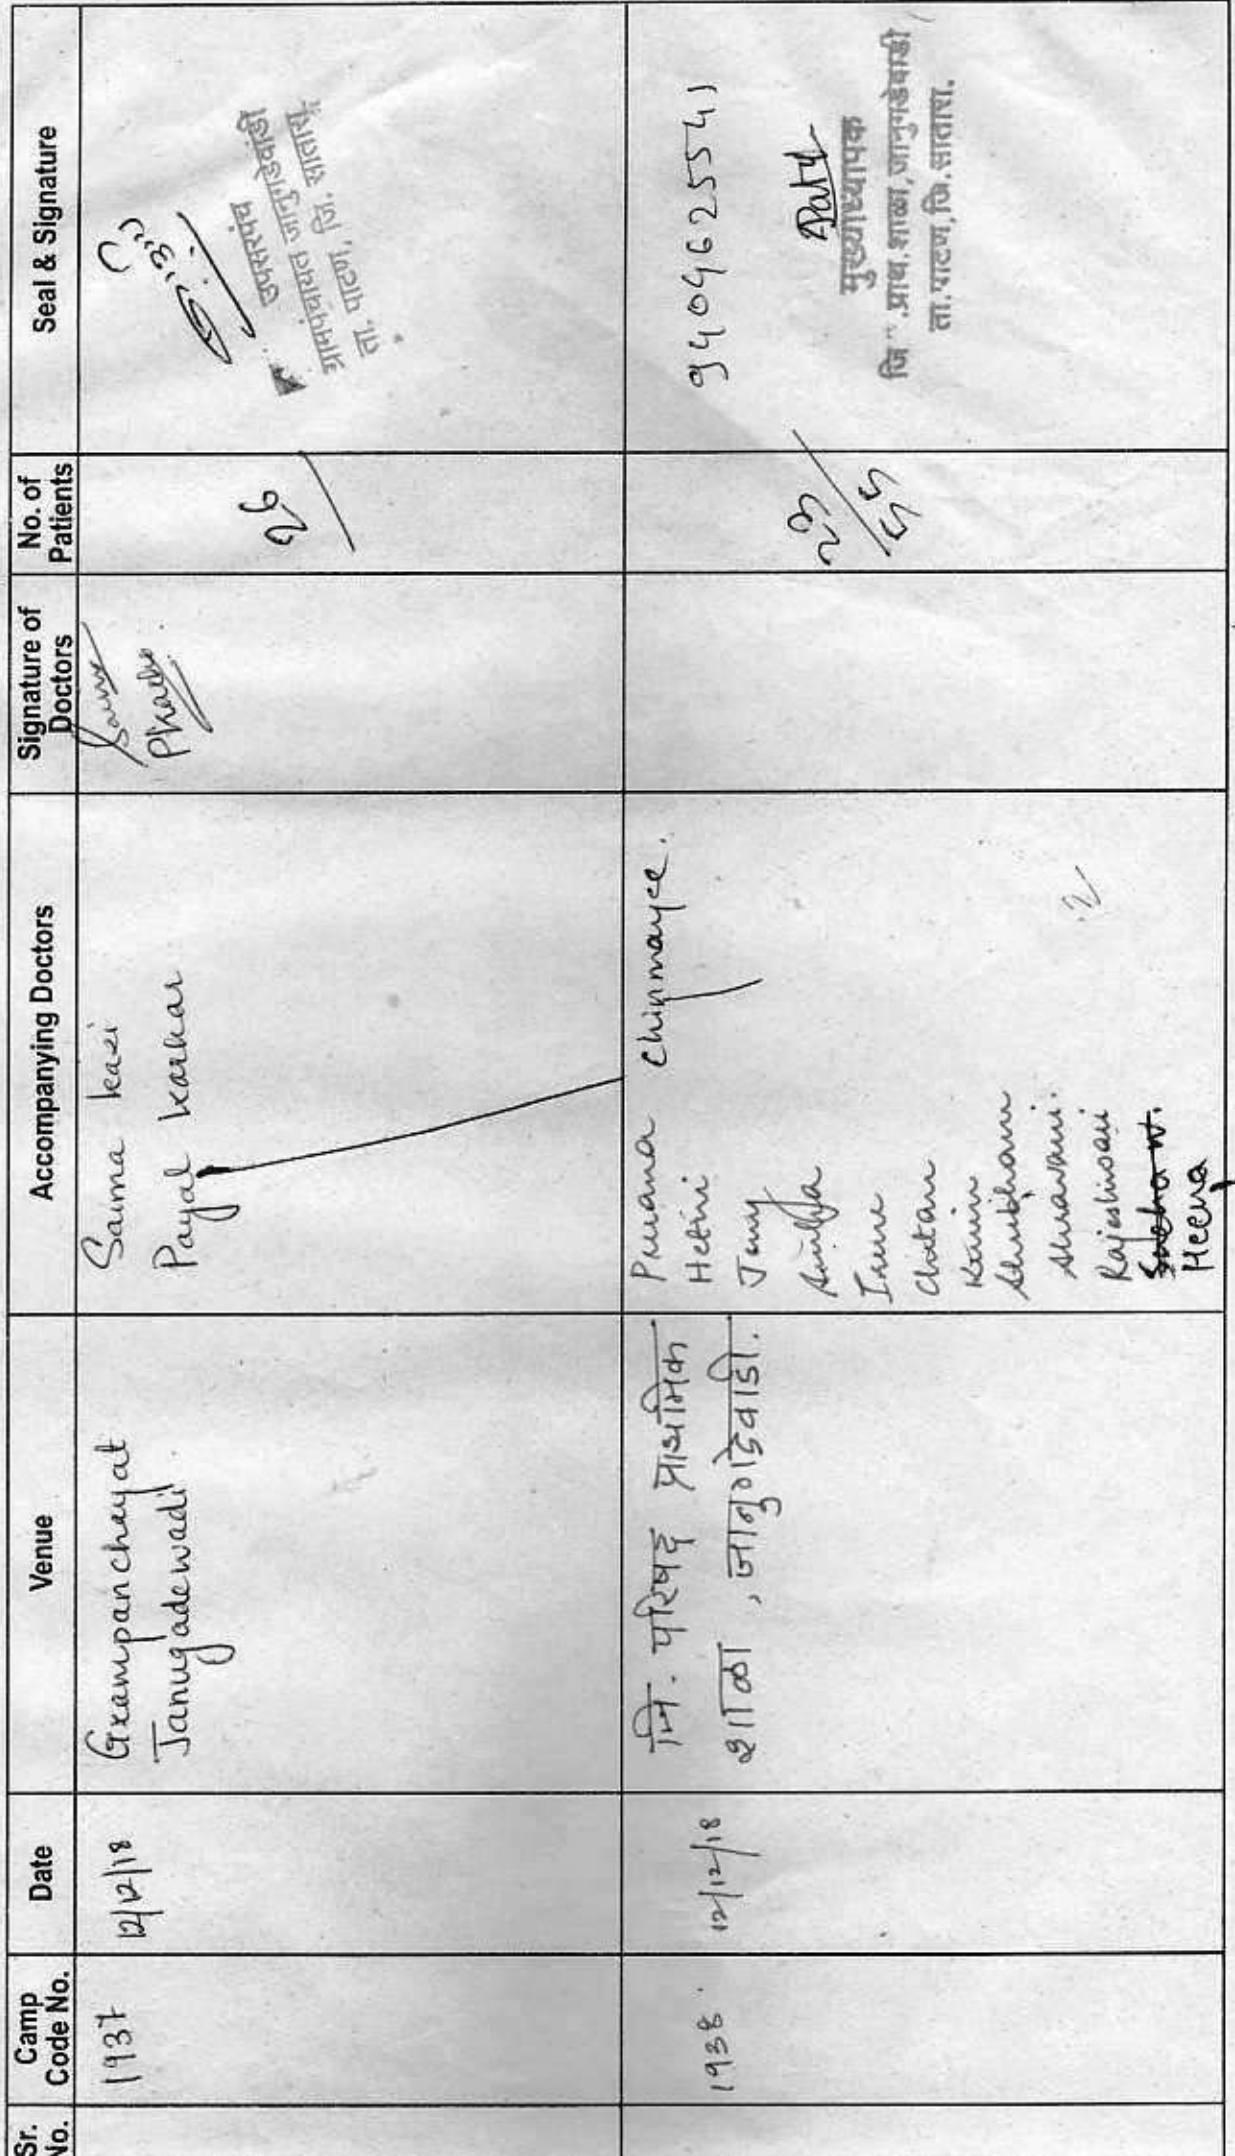 Sr. No.
Camp Code No.
Date
Venue
Accompanying Doctors
Signature of Doctors
No. of Patients
Seal & Signature
1937
12/12/18
Grampanchayat
Janugadewadi
Saima kazi
Payal karkar
26
उपसरपंच
ग्रामपंचायत जानुगडेवाडी
ता. पाटण, जि. सातारा.
1938
12/12/18
जि. परिषद प्राथमिक
शाळा , जानुगडेवाडी.
Purana Chinmayee.
Hetvi
Jenny
Chetan
Shubham
Shravani.
Rajeshwari
Heena
23/55
9404625541
Patil
मुख्याध्यापक
जि. .प्राथ.शाळा,जानुगडेवाडी
ता.पाटण,जि.सातारा.